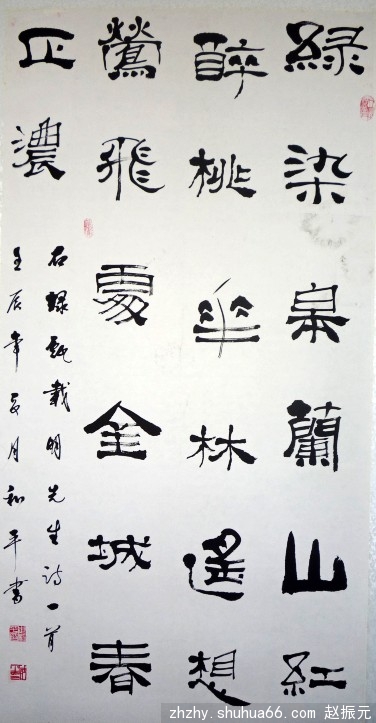 綠染皋蘭山紅
醉桃華林遙想
鶯飛處金城春
正濃
右錄甄載明先生詩一首
壬辰年夏月和平書
zhzhy.shuhua66.com 赵振元